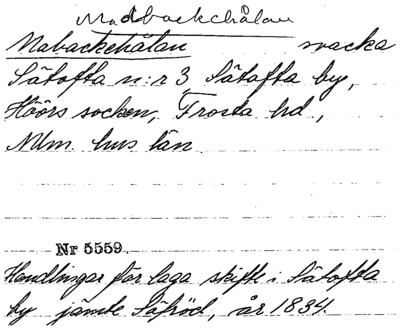 Madbackehålan
Mabackehålan svacka
Sätofta n:r 3, Sätofta by,
Höörs socken, Frosta hd.,
Mlm. hus län
Nr 5559.
Handlingar för laga skifte i Sätofta
by jämte Säfröd, år 1834.